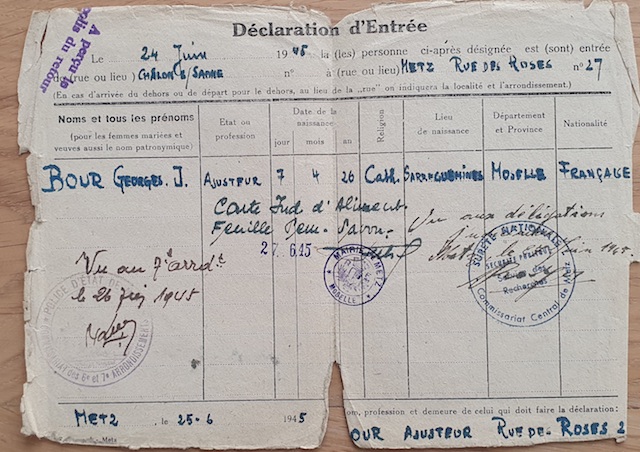 A perçu le
colis du retour
Déclaration d'Entrée
Le 24 Juin 1945 la (les) personne ci-après désignée est (sont) entrée
de (rue ou lieu) CHÂLON S/ SAÔNE n° à (rue ou lieu) METZ RUE DES ROSES n° 27
(En cas d'arrivée du dehors ou de départ pour le dehors, au lieu de la „rue" on indiquera la localité et l'arrondissement.)
Noms et tous les prénoms
(pour les femmes mariées et
veuves aussi le nom patronymique)
Etat ou
profession
Date de la
naissance
jour mois an
Religion
Lieu
de naissance
Département
et Province
Nationalité
BOUR GEORGES. J. AJUSTEUR 7 4 26 Cath. SARREGUEMINES MOSELLE FRANÇAISE
Carte Ind. d'Aliment.
Feuille Sem. Savon.
27. 6. 45
Vu au 7e arrdt
le 26 juin 1945
MAIRIE DE METZ
MOSELLE
SÛRETÉ NATIONALE
Service des
Recherches
Commissariat Central de Metz
POLICE D'ETAT
des 6e et 7e ARRONDISSEMENTS
METZ , le 25-6 1945
om, profession et demeure de celui qui doit faire la déclaration:
OUR AJUSTEUR RUE DES ROSES 2
Metz